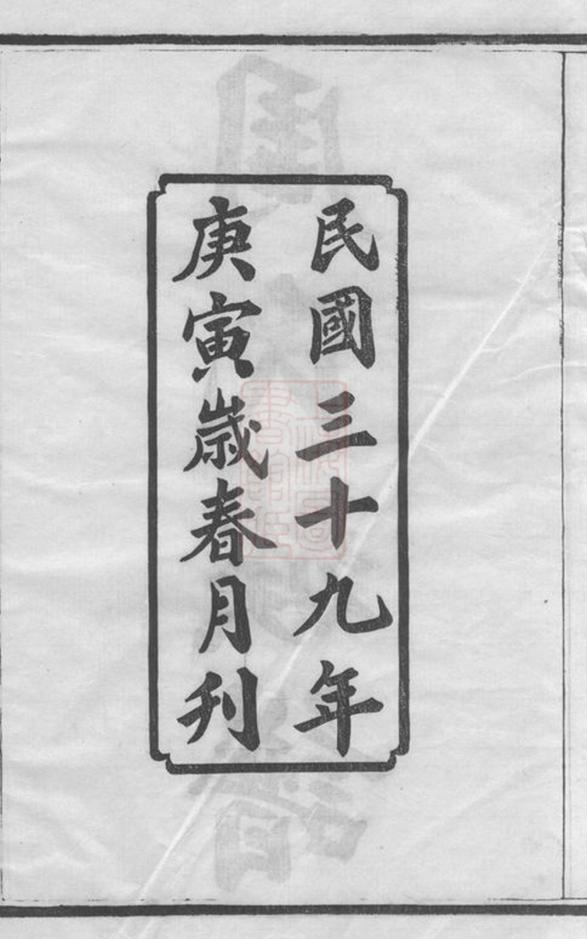 民國三十九年
庚寅歲春月刊